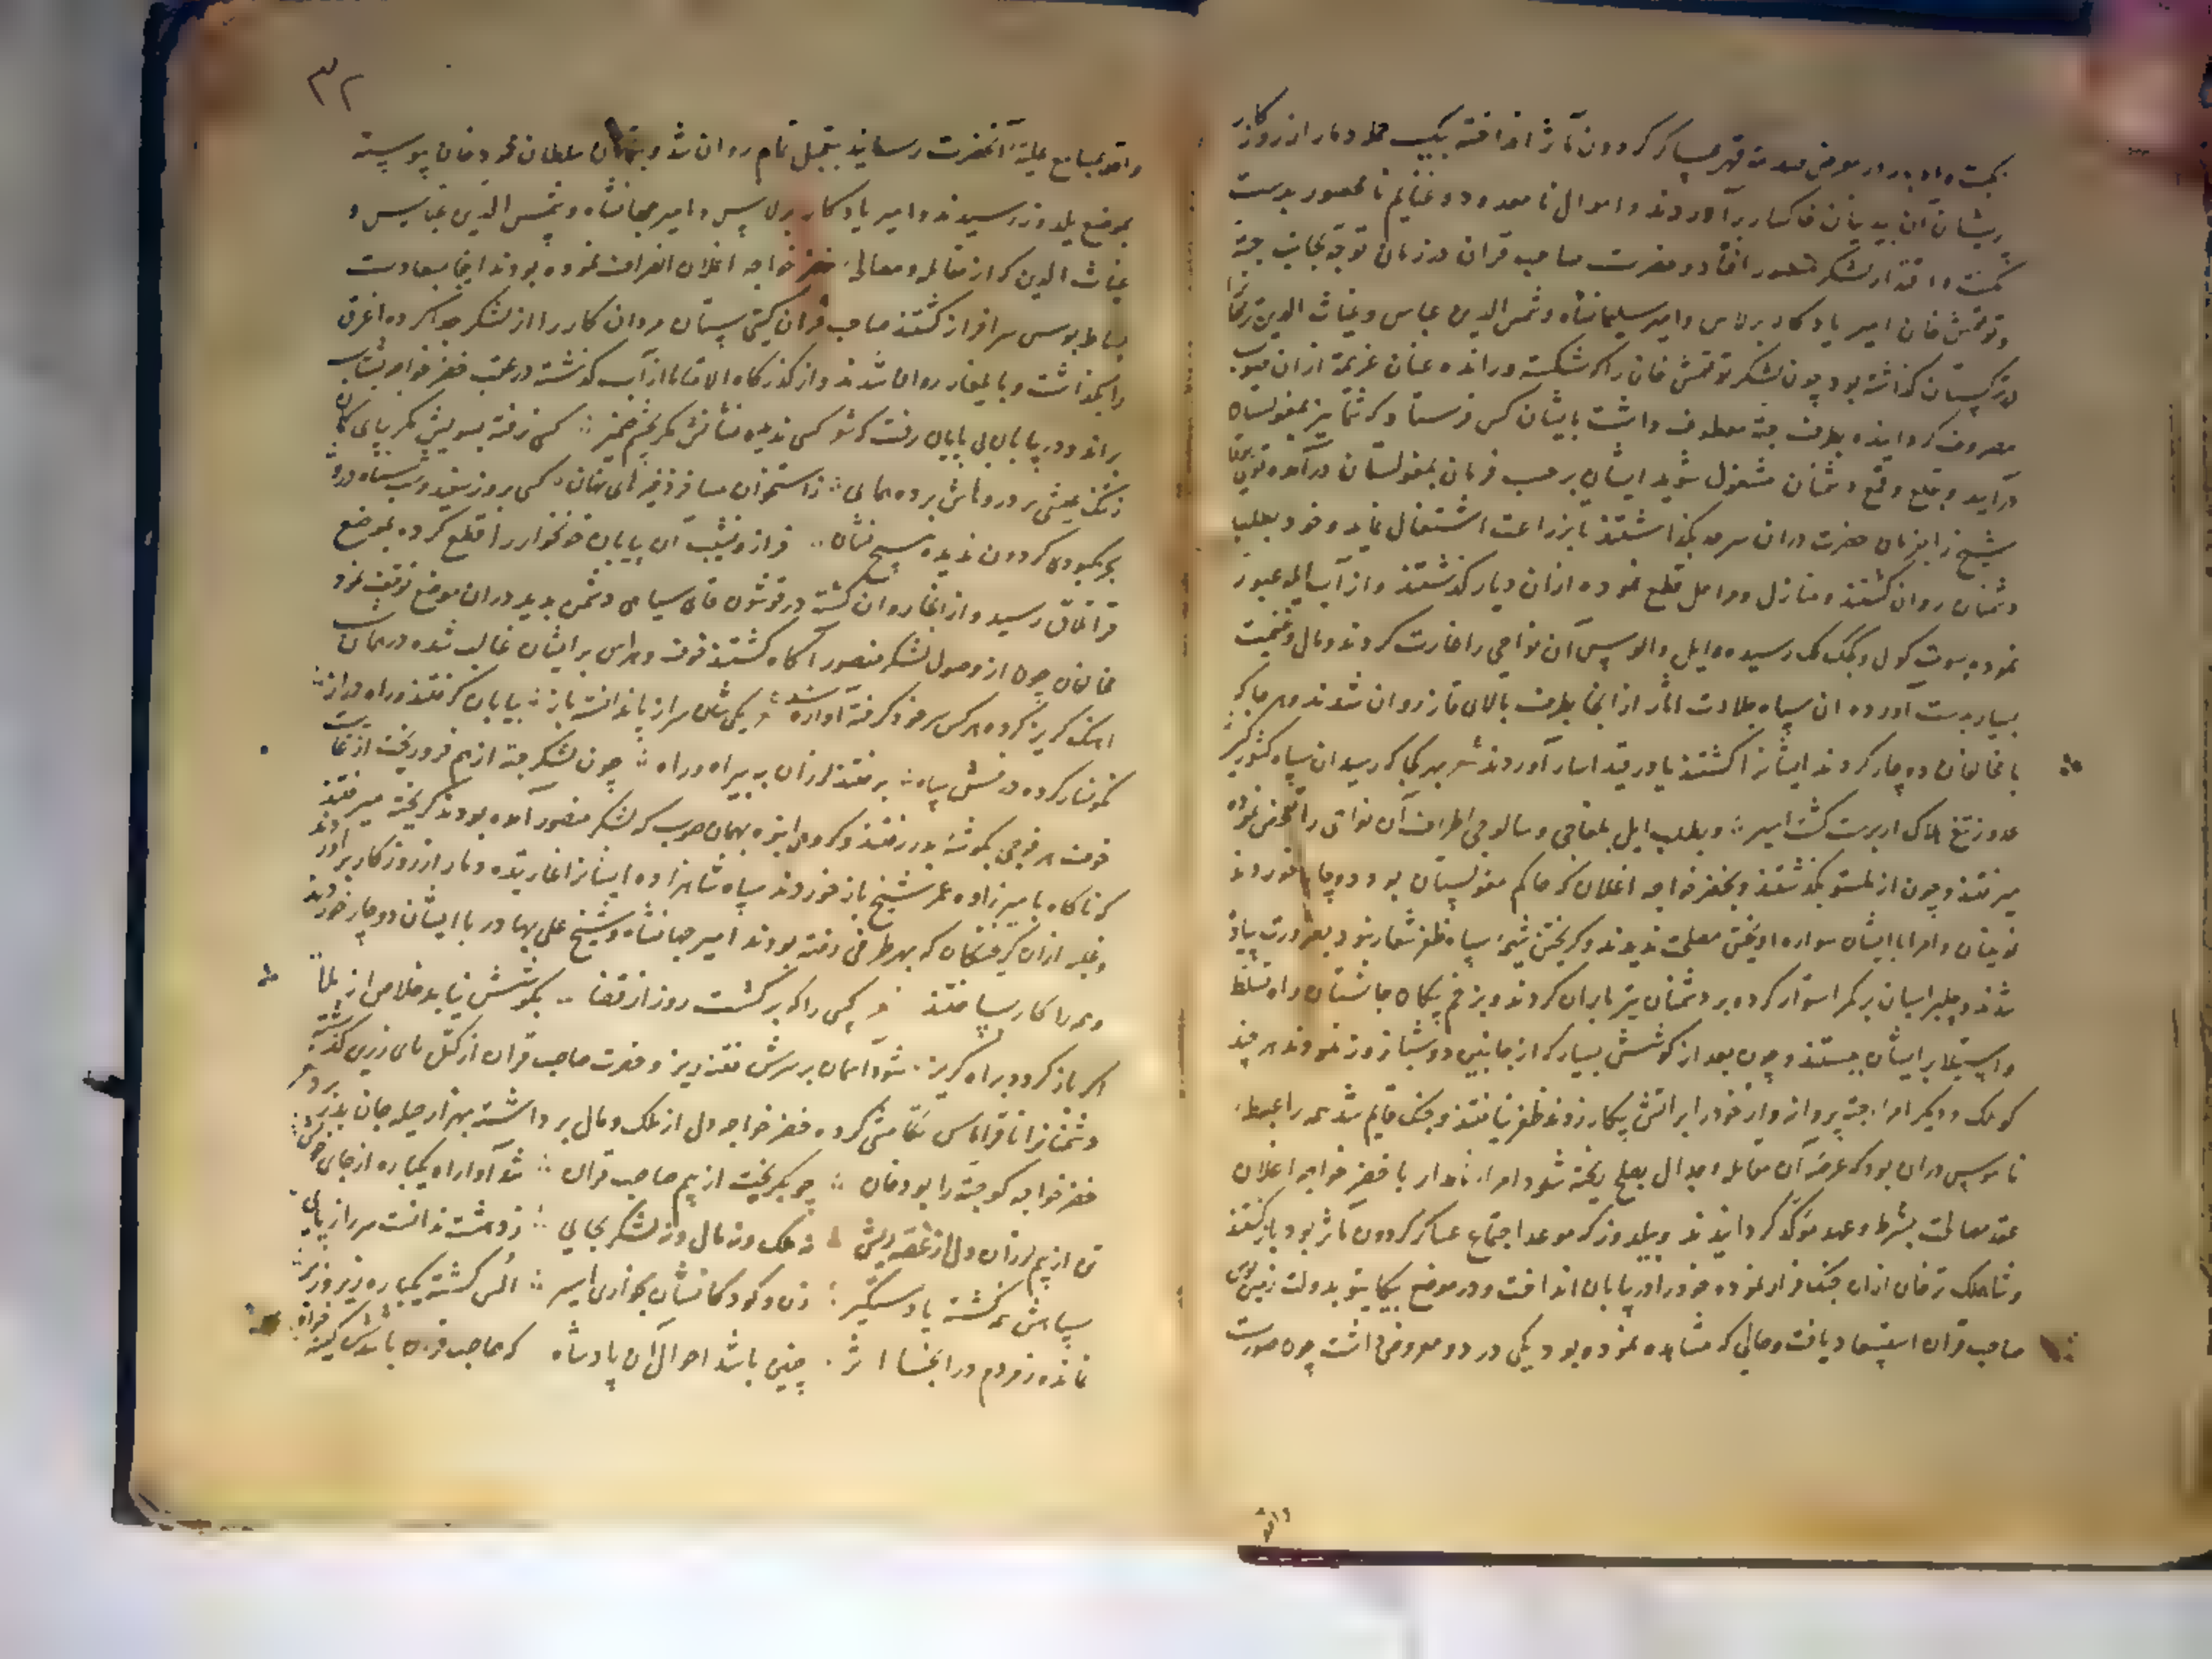 نکبت و ادبار در معرض صدمهٔ قهر عساکر گردون مآثر انداخته بیک حمله دمار از روزگار
پریشان آن بدبینان خاکسار برآوردند و اموال نامعدود و غنایم نامحصور بدست
مکنت و اقتدار لشکر منصور افتاد و حضرت صاحب قران در زمان توجه بجانب جته
و توقتمش خان امیر یادکار برلاس و امیر سلیمانشاه و شمس الدین عباس و غیاث الدین ترخان
در ترکستان گذاشته بود چون لشکر توقتمش خان را که شکسته و رانده عنان عزیمة ازان صوب
مصروف گردانیده بطرف جته معطوف داشت بایشان کس فرستاد که شما نیز بمغولستان
درآیید و بقلع و قمع دشمنان مشغول شوید ایشان بر حسب فرمان بمغولستان درآمده
شیخ را بفرمان حضرت دران سرحد بگذاشتند تا بزراعت اشتغال نماید و خود بطلب
دشمنان روان کشتند و منازل و مراحل قطع نموده ازان دیار گذشتند و از آب ایله عبور
نموده بسوت کول و چکلک رسیده و ایل و الوس آن نواحی را غارت کردند و مال و غنیمت
بسیار بدست آورده ان سپاه جلادت اثار از انجا بطرف بالای قاز روان شدند و هرجا که
با مخالفان دوچار کردند ایشانرا کشتند یا در قید اسار آوردند شعر بهر کجا که رسید ان سپاه کشورگیر
عدو ز تیغ هلاک ار برست گشت اسیر و بطلب ایل بلغاجی و سالوجی اطراف آن نواحی را تفحص نموده
میرفتند و چون از ملستو بگذشتند و بخضر خواجه اغلان که حاکم مغولستان بود دوچار خوردند
نوینان و امرا با ایشان سواره آویختن مصلحت ندیدند و گریختن شیمهٔ سپاه ظفر شعار نبود بضرورت پیاده
شدند و جلبر اسبان بر کمر استوار کرده بر دشمنان تیر باران کردند و بزخم پیکان جانستان راه تسلط
و استیلا بر ایشان ببستند و چون بعد از کوشش بسیار که از جانبین دو شبانروز نمودند هر چند
کوملک و دیگر امراء جته پروانه وار خود را بر اتش پیکار زدند ظفر نیافتند و جنک قایم شد همه را ضبط
ناموس دران بود که عرصهٔ آن معامله و جدال بصلح ریخته شود امراء نامدار با خضر خواجه اغلان
عقد مصالحت بشرط و عهد مؤکد گردانیدند و بیلدوز که موعد اجتماع عساکر گردون مآثر بود بازگشتند
و شاملک ترخان ازان جنک فرار نموده خود را در بیابان انداخت و در موضع کیتو بدولت زمین بوس
صاحب قران استسعاد یافت و حالی که مشاهده نموده بود یکی در دو معروض داشت چون صورت
واقعه
۳۲
واقعه بمسامع علیهٔ آنحضرت رسانید بتعجیل تمام روان شد و سلطان محمود خان پیوسته
بموضع یلدوز رسیدند و امیر یادکار برلاس و امیر سلیمانشاه و شمس الدین عباس و
غیاث الدین که از مقابله و مصالحهٔ خضر خواجه اغلان انصراف نموده بودند انجا بسعادت
بساط بوسی سرافراز کشتند صاحب قران گیتی ستان مردان کار را از لشکر جدا کرده اغرق
را بگذاشت و بایلغار روان شدند و از گذرگاه از آب گذشته در عقب خضر خواجه بشتاب
براند و در بیابان بی پایان رفت که شو کسی ندیده نشانش مگر بچشم ضمیر کس نرفته بسویش مگر بپای گمان
ز تنگ عیشی بر در وماش برده همای ز استخوان مسافر ذخیرهای نهان کسی بروز سفید و شب سیاه درو
بجز کبودی گردون ندیده هیچ نشان فراز و نشیب آن بیابان خونخوار را قطع کرده بموضع
قراتاق رسید و از انجا روان گشته در قوشون قای سیاهی دشمن بدید دران موضع توقف نمود
مخالفان چون از وصول لشکر منصور آگاه کشتند خوف و هراس بر ایشان غالب شده در همان شب
اهنک گریز کرده هر کس سر خود گرفته آواره شد یکی شان سر از پا ندانسته باز بیابان گرفتند و راه دراز
نکونسار کرده درفش سپاه برفتند لرزان به بیراه و راه چون لشکر جته از هم فرو ریخت از غایت
خوف هر فوجی بگوشهٔ بدر رفتند و گروهی انبوه بهمان صوب که لشکر منصور آمده بودند گریخته میرفتند
که ناگاه بامیرزاده عمر شیخ باز خوردند سپاه شاهزاده ایشانرا غارتیده دمار از روزگار برآوردند
و خلیر ازان گریختگان که بهر طرفی رفته بودند امیر جهانشاه و شیخ علی بهادر با ایشان دوچار خوردند
و همه را کار بساختند کسی را که برگشت روز از قضا بکوشش نیابد خلاص از بلا
اگر باز گردد براه گریز شود آسمان بر سرش فتنه ریز و حضرت صاحب قران از کتل نای زرین گذشته
دشمنانرا تا قراتاس تکامشی کرده خضر خواجه دل از ملک و مال برداشته بهزار حیله جان بدر برد
خضر خواجه کو جته را بود خان چو بگریخت از بیم صاحب قران شد آواره یکباره از جای خویش
تن از بیم لرزان و دل از غصه ریش نه ملک و نه مال و نه لشکر بجای ز دهشت ندانست سر را ز پای
سپاهش همه کشته یا دستگیر زن و کودکانشان بخواری اسیر الس گشته یکباره زیر و زبر
نمانده ز مردم در انجا اثر چنین باشد احوال آن پادشاه که صاحب قران باشدش کینه خواه